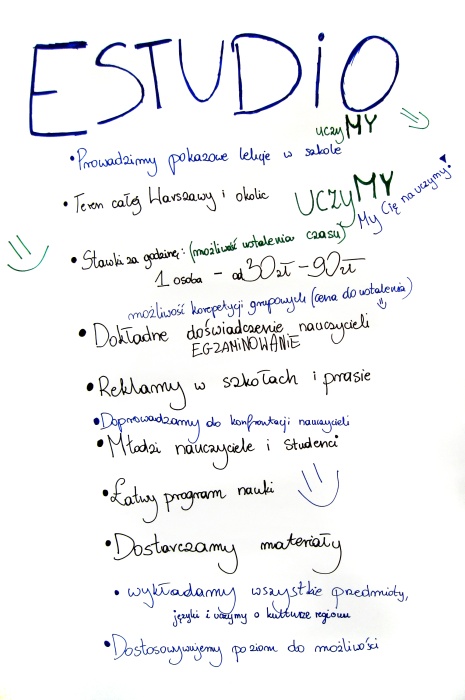 ESTUDiO
uczyMY
• Prowadzimy pokazowe lekcje w szkole
• Teren całej Warszawy i okolic
UCZyMY
My Cię nauczymy!
• Stawki za godzinę: (możliwość ustalenia czasu)
1 osoba - od 30zł - 90zł
możliwość korepetycji grupowych (cena do ustalenia)
• Dokładne doświadczenie nauczycieli
EGZAMINOWANIE
• Reklamy w szkołach i prasie
• Doprowadzamy do konfrontacji nauczycieli
• Młodzi nauczyciele i studenci
• Łatwy program nauki
• Dostarczamy materiały
• wykładamy wszystkie przedmioty,
języki i uczymy o kulturze regionu
• Dostosowywujemy poziom do możliwości